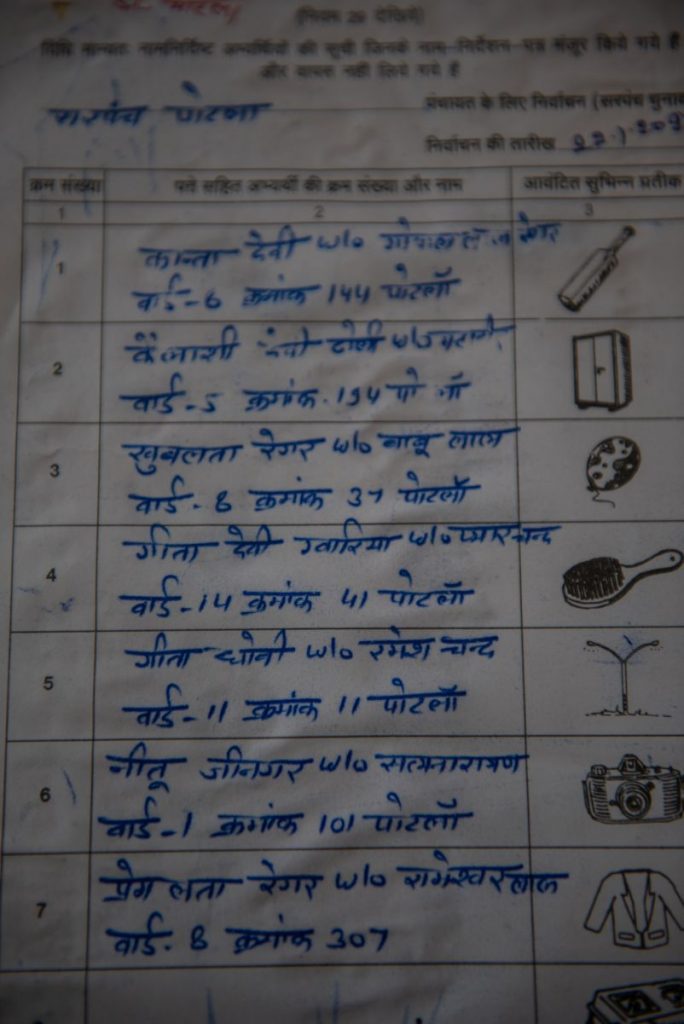 (नियम 26 देखिये)
विधि मान्यतः नामनिर्दिष्ट अभ्यर्थियों की सूची जिनके नाम-निर्देशन-पत्र मंजूर किये गये हैं
और वापस नहीं लिये गये है
सरपंच पोटला
पंचायत के लिए निर्वाचन (सरपंच चुनाव
निर्वाचन की तारीख
क्रम संख्या पते सहित अभ्यर्थी की क्रम संख्या और नाम आवंटित सुभिन्न प्रतीक
1 2 3
1 कान्ता देवी w/o
वार्ड-6 क्रमांक 144 पोटलॉ
2
वार्ड-5 क्रमांक-194
3 खुबलता रेगर w/o बाबू लाल
वार्ड-8 क्रमांक 37 पोटलॉ
4 गीता देवी ग्वारिया w/o प्यारचन्द
वार्ड-14 क्रमांक 41 पोटलॉ
5 गीता धोबी w/o रमेश चन्द
वार्ड-11 क्रमांक 11 पोटलॉ
6 नीतू जीनगर w/o सत्यनारायण
वार्ड-1 क्रमांक 101 पोटलॉ
7 प्रेम लता रेगर w/o रामेश्वरलाल
वार्ड-8 क्रमांक 307